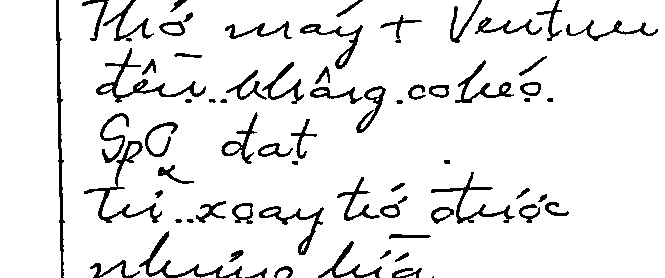 Thở máy + Venturi
đều không co kéo.
SpO₂ đạt
tự xoay trở được